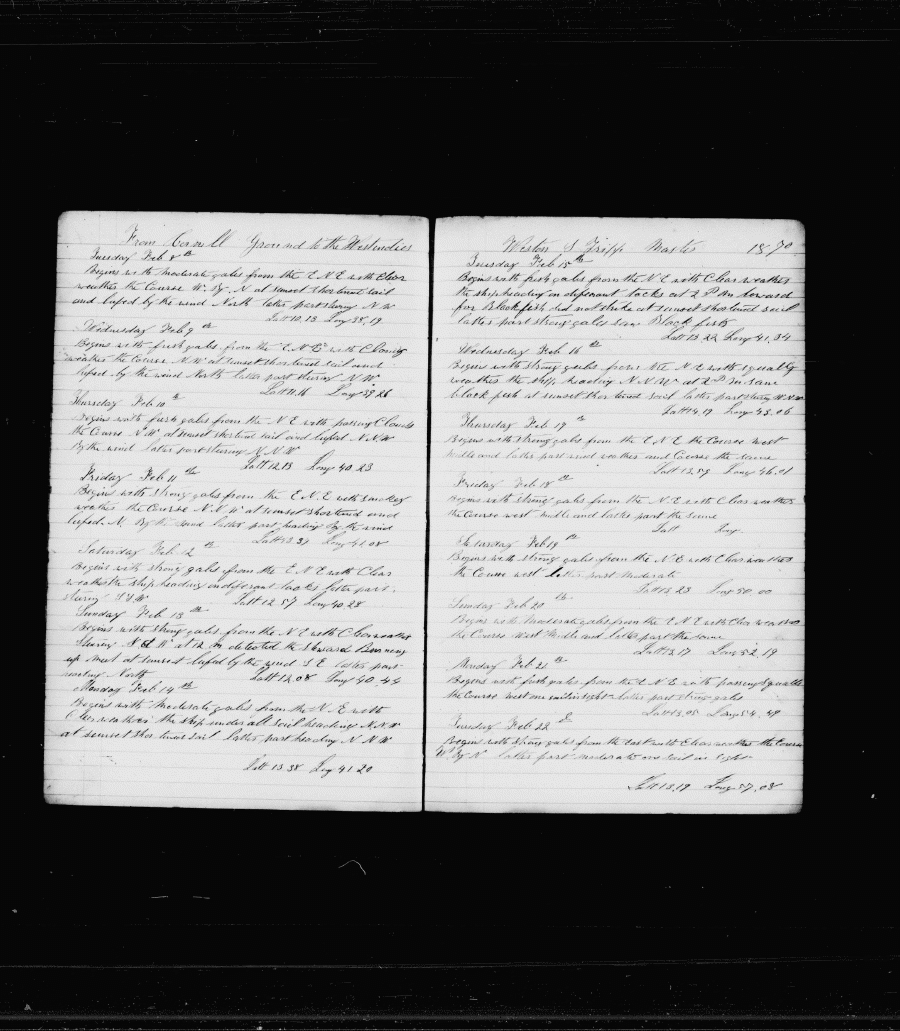 From Cornell Ground to the Westindies
Tuesday Feb 8th
Begins with moderate gales from the E N E with Clear
weather the Course W. By. N at sunset shortened sail
and lufed by the wind North latter part stearing N W
Latt 10.13 Long 38.19
Wednesday Feb 9th
Begins with fresh gales from the E N E with Cloudy
weather the Course N.W at sunset shortened sail and
lufed by the wind North latter part stearing N W
Latt 11.16 Long 39 26
Thursday Feb 10th
Begins with fresh gales from the N E with passing Clouds
the Course N W at sunset shortened sail and lufed N.N.W
By the wind latter part stearing N.N.W
Latt 12 13 Long 40.23
Friday Feb 11th
Begins with strong gales from the E.N.E with smokey
weather the Course N.N.W at sunset shortened and
lufed N. By the wind latter part heading By the wind
Latt 13 39 Long 41.08
Saturday Feb 12th
Begins with strong gales from the E N E with Clear
weather the ship heading on different tacks latter part
stearing S S W
Latt 12 57 Long 40 28
Sunday Feb 13th
Begins with strong gales from the N E with Clear weather
Stearing at 12 detected the Steward Burning
up meat at sunset lufed by the wind S E latter part
North
Latt 12.08 Long 40.44
Monday Feb 14th
Begins with moderate gales from the N.E with
Clear weather the ship under all sail heading N.N.W
at sunset shortened sail latter part heading N N W
Latt 13 38 Long 41 20
Weston S Tripp Master 1870
Tuesday Feb 15th
Begins with fresh gales from the N E with Clear weather
the ship heading on different tacks at 2 P M lowered
for Blackfish did not strike at sunset shortened sail
latter part strong gales saw Black fish
Latt 13 22 Long 41.34
Wednesday Feb 16th
Begins with strong gales from the N E with squally
weather the ship heading N.N.W at 2 P M saw
black fish at sunset shortened sail latter part stearing W.N.W
Latt 14.19 Long 43.06
Thursday Feb 17th
Begins with strong gales from the E N E the Course West
latter part wind weather and Course the same
Latt 13.59 Long 46.01
Friday Feb 18th
Begins with strong gales from the N.E with Clear weather
the Course west and latter part the same
Latt Long
Saturday Feb 19th
Begins with strong gales from the N E with Clear weather
the Course west latter part moderate
Latt 13 23 Long 50.00
Sunday Feb 20th
Begins with moderate gales from the E N E with Clear weather
the Course West middle and latter part the same
Latt 13 17 Long 52.19
Monday Feb 21th
Begins with fresh gales from the E N E with passing squalls
the Course West one sail in sight latter part strong gales
Latt 13.05 Long 54.49
Tuesday Feb 22
Begins with strong gales from the East with Clear weather the Course
W. By N latter part moderate one sail in sight
Latt 13.19 Long 57.08